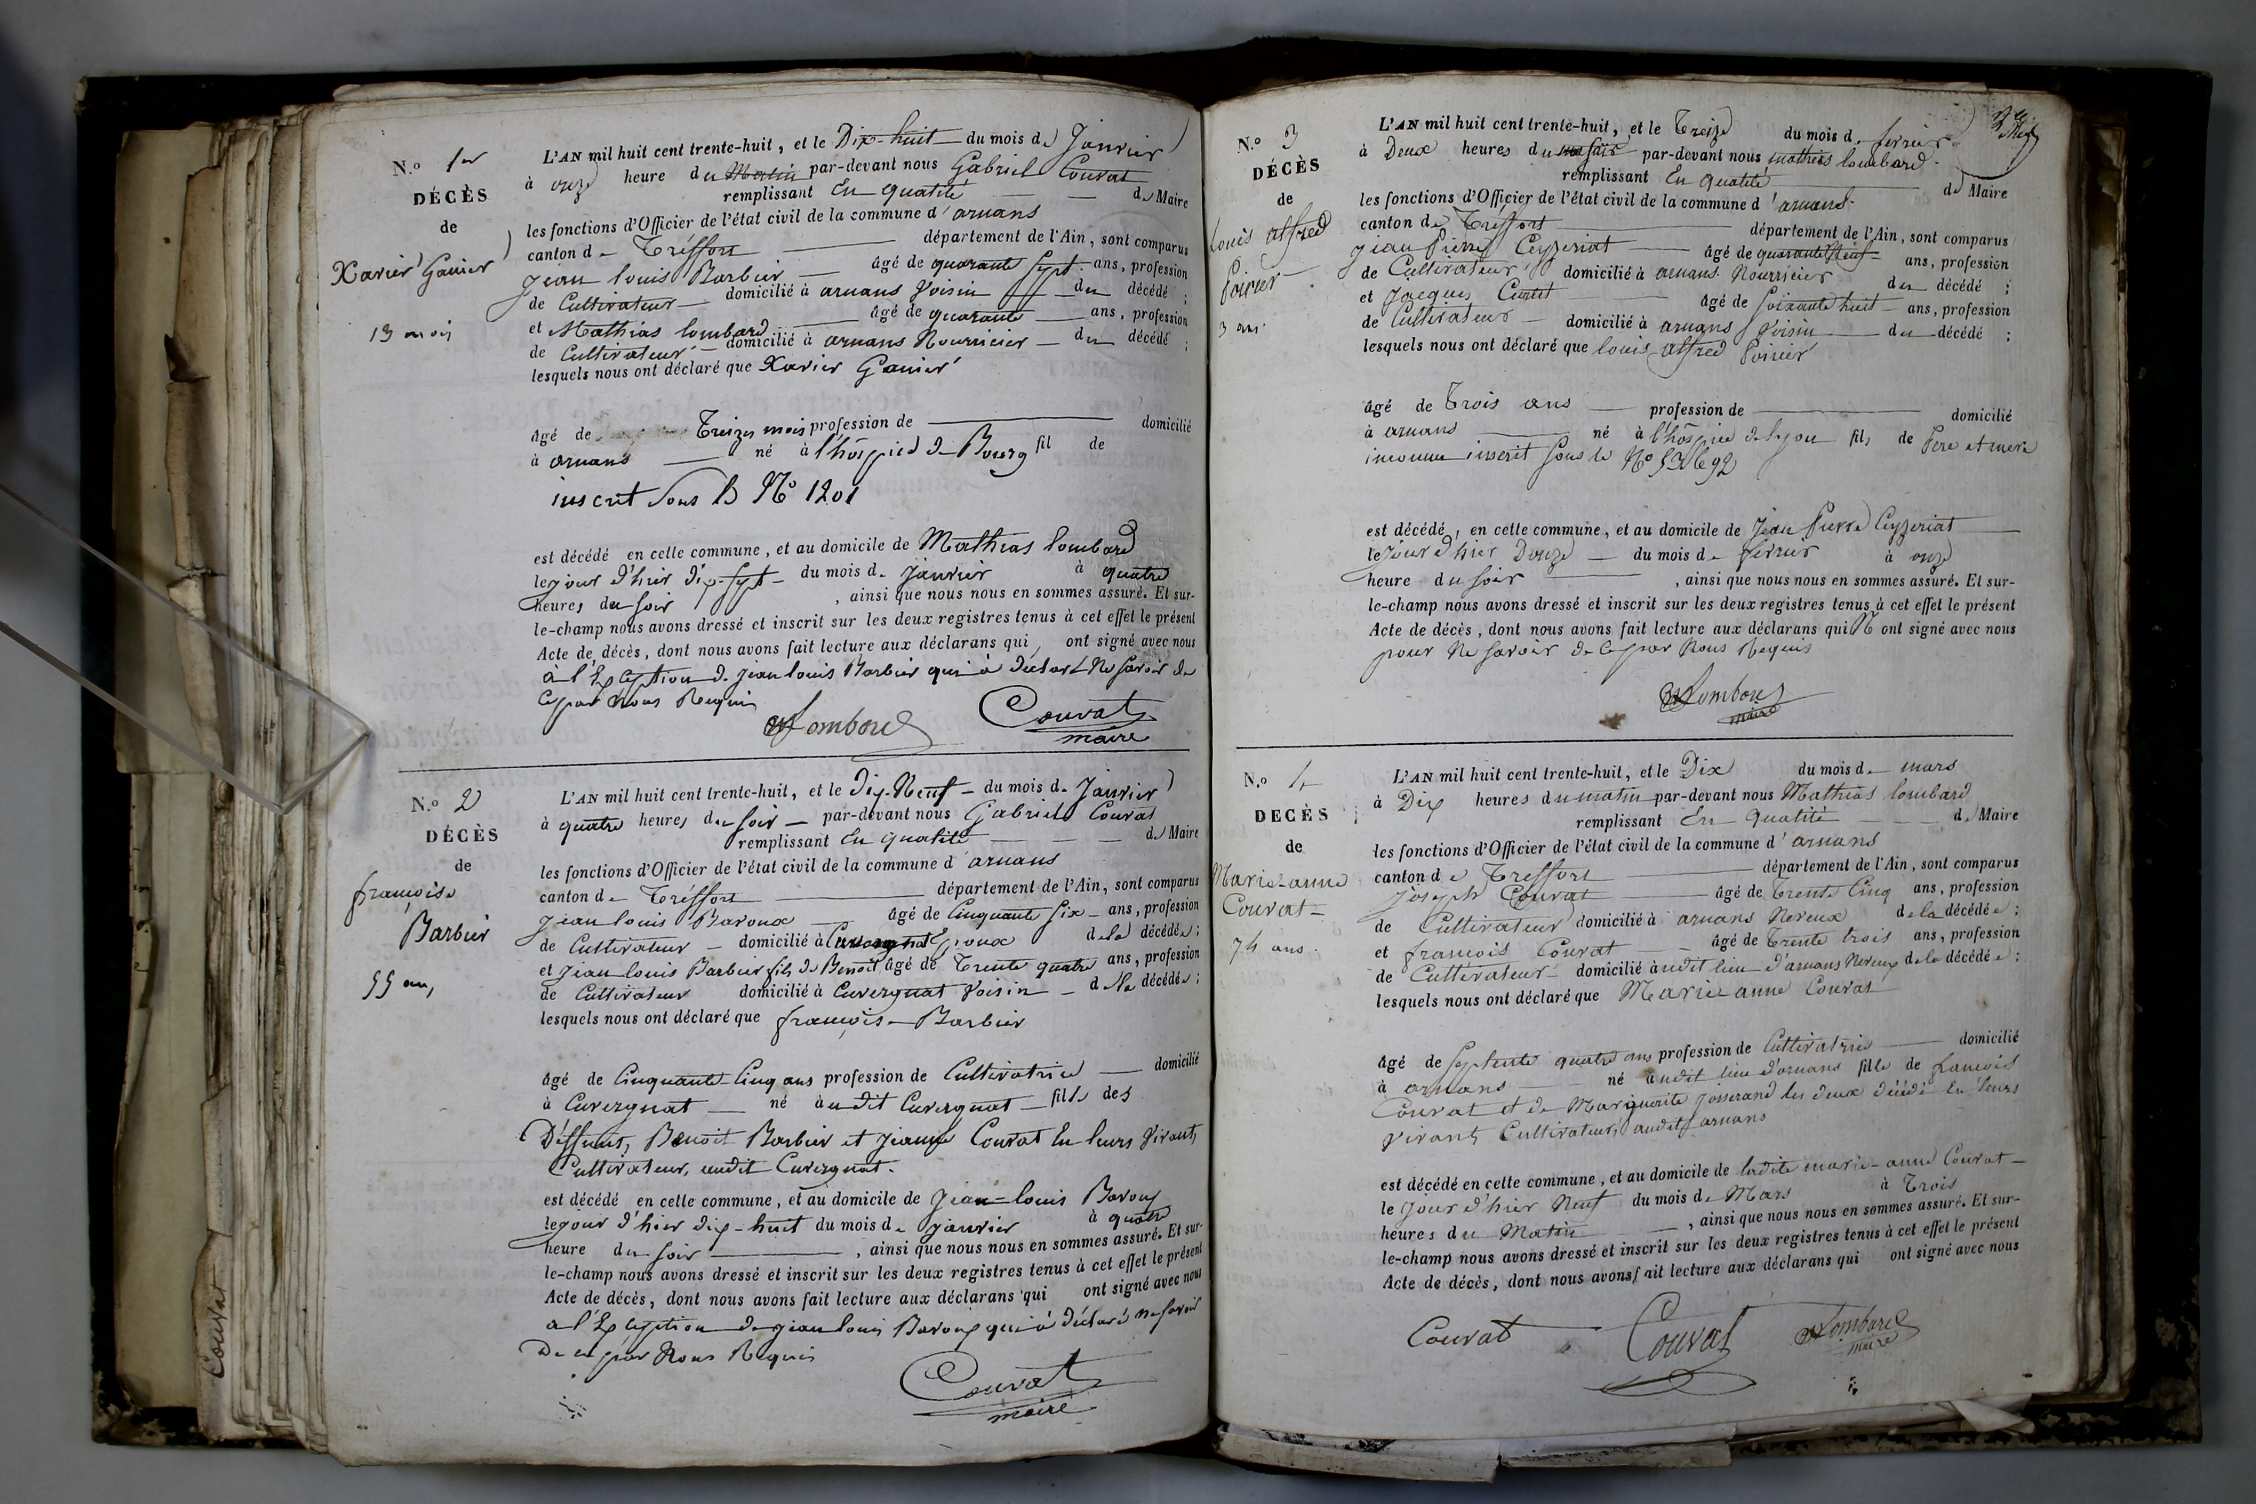 N.° 1er
DÉCÈS
de
Xavier Ganier
13 mois
L'AN mil huit cent trente-huit, et le Dix-huit du mois de Janvier
à onze heure du Matin par-devant nous Gabriel Couvat
remplissant En qualité de Maire
les fonctions d'Officier de l'état civil de la commune d'arnans
canton de Tréffort département de l'Ain, sont comparus
Jean louis Barbier âgé de quarante sept ans, profession
de Cultivateur domicilié à arnans Voisin du décédé ;
et Mathias lombard âgé de quarante ans, profession
de Cultivateur domicilié à arnans Nourricier du décédé ;
lesquels nous ont déclaré que Xavier Ganier
âgé de Treizes mois profession de domicilié
à arnans né à l'hospice de Bourg fil de
inscrit sous le N° 1201
est décédé en cette commune, et au domicile de Mathias lombard
le jour d'hier dix-sept du mois de Janvier à quatre
heures du soir , ainsi que nous nous en sommes assuré. Et sur-
le-champ nous avons dressé et inscrit sur les deux registres tenus à cet effet le présent
Acte de décès, dont nous avons fait lecture aux déclarans qui ont signé avec nous
à l'Exception de jean louis Barbier qui à déclaré Ne savoir de
ce par Nous Requis
Lombard
Couvat
maire
N.° 2
DÉCÈS
de
françoise
Barbier
55 ans
L'AN mil huit cent trente-huit, et le Dix-Neuf du mois de Janvier
à quatre heures du soir par-devant nous Gabriel Couvat
remplissant En qualité de Maire
les fonctions d'Officier de l'état civil de la commune d arnans
canton de Tréffort département de l'Ain, sont comparus
Jean louis Baroux âgé de Cinquante six ans, profession
de Cultivateur domicilié à Cuvergnat Epoux de la décédée ;
et Jean louis Barbier fils de Benoit âgé de Trente quatre ans, profession
de Cultivateur domicilié à Cuvergnat Voisin de la décédée ;
lesquels nous ont déclaré que françoise Barbier
âgé de Cinquante Cinq ans profession de Cultivatrice domicilié
à Cuvergnat né à udit Cuvergnat fille des
Déffunts, Benoit Barbier et Jeanne Couvat En leurs Vivants
Cultivateurs, audit Cuvergnat.
est décédé en cette commune, et au domicile de Jean-louis Baroux
le jour d'hier dix-huit du mois de Janvier à quatre
heure du soir , ainsi que nous nous en sommes assuré. Et sur-
le-champ nous avons dressé et inscrit sur les deux registres tenus à cet effet le présent
Acte de décès, dont nous avons fait lecture aux déclarans qui ont signé avec nous
a l'Exception de jean louis Baroux qui à déclaré ne savoir
De ce par Nous Requis
Couvat
maire
Couvat
N.° 3
DÉCÈS
de
Louis alfred
Poirier
3 ans
L'AN mil huit cent trente-huit, et le Treize du mois de ferrier
à Deux heures du soir par-devant nous mathias lombard
remplissant En qualité de Maire
les fonctions d'Officier de l'état civil de la commune d'arnans
canton de Tréffort département de l'Ain, sont comparus
Jean Pierre Ceyzeriat âgé de quarante Neuf ans, profession
de Cultivateur domicilié à arnans Nourricier du décédé ;
et Jacques Curtet âgé de soixante huit ans, profession
de Cultivateur domicilié à arnans Voisin du décédé ;
lesquels nous ont déclaré que louis alfred Poirier
âgé de Trois ans profession de domicilié
à arnans né à l'hospice de lyon fils de Pere et mere
inconnu inscrit sous le N°
est décédé, en cette commune, et au domicile de Jean Pierre Ceyzeriat
le jour d'hier Douze du mois de ferrier à onze
heure du soir , ainsi que nous nous en sommes assuré. Et sur-
le-champ nous avons dressé et inscrit sur les deux registres tenus à cet effet le présent
Acte de décès, dont nous avons fait lecture aux déclarans qui N ont signé avec nous
pour Ne savoir de ce par Nous Requis
Lombard
maire
N.° 4
DÉCÈS
de
Marie-anne
Couvat
74 ans
L'AN mil huit cent trente-huit, et le Dix du mois de mars
à Dix heures du matin par-devant nous Mathias lombard
remplissant En qualité de Maire
les fonctions d'Officier de l'état civil de la commune d'arnans
canton de Treffort département de l'Ain, sont comparus
joseph Couvat âgé de Trente Cinq ans, profession
de Cultivateur domicilié à arnans Neveux de la décédée ;
et françois Couvat âgé de Trente trois ans, profession
de Cultivateur domicilié à udit lieu d'arnans Neveux de la décédée ;
lesquels nous ont déclaré que Marie anne Couvat
âgé de septente quatre ans profession de Cultivatrice domicilié
à arnans né audit lieu d'arnans fille de francois
Couvat et de Marguerite josserand les deux décédé En leurs
vivants Cultivateurs audit arnans
est décédé en cette commune, et au domicile de ladite marie-anne Couvat
le jour d'hier Neuf du mois de Mars à Trois
heures du Matin , ainsi que nous nous en sommes assuré. Et sur-
le-champ nous avons dressé et inscrit sur les deux registres tenus à cet effet le présent
Acte de décès, dont nous avons fait lecture aux déclarans qui ont signé avec nous
Couvat Couvat Lombard
maire